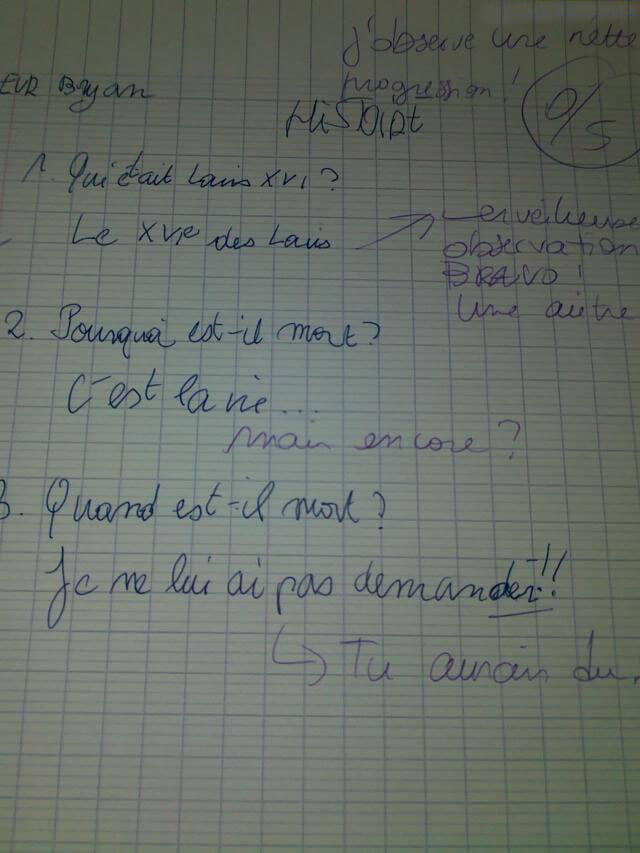 J'observe une nette
progression !
EUR Bryan
HiSTOIRE
0/5
1. Qui était Louis XVI ?
Le XVIe des Louis
erveilleuse
observation
BRAVO !
Une autre
2. Pourquoi est-il mort ?
C'est la vie...
mais encore ?
3. Quand est-il mort ?
Je ne lui ai pas demander !!
Tu aurais du.